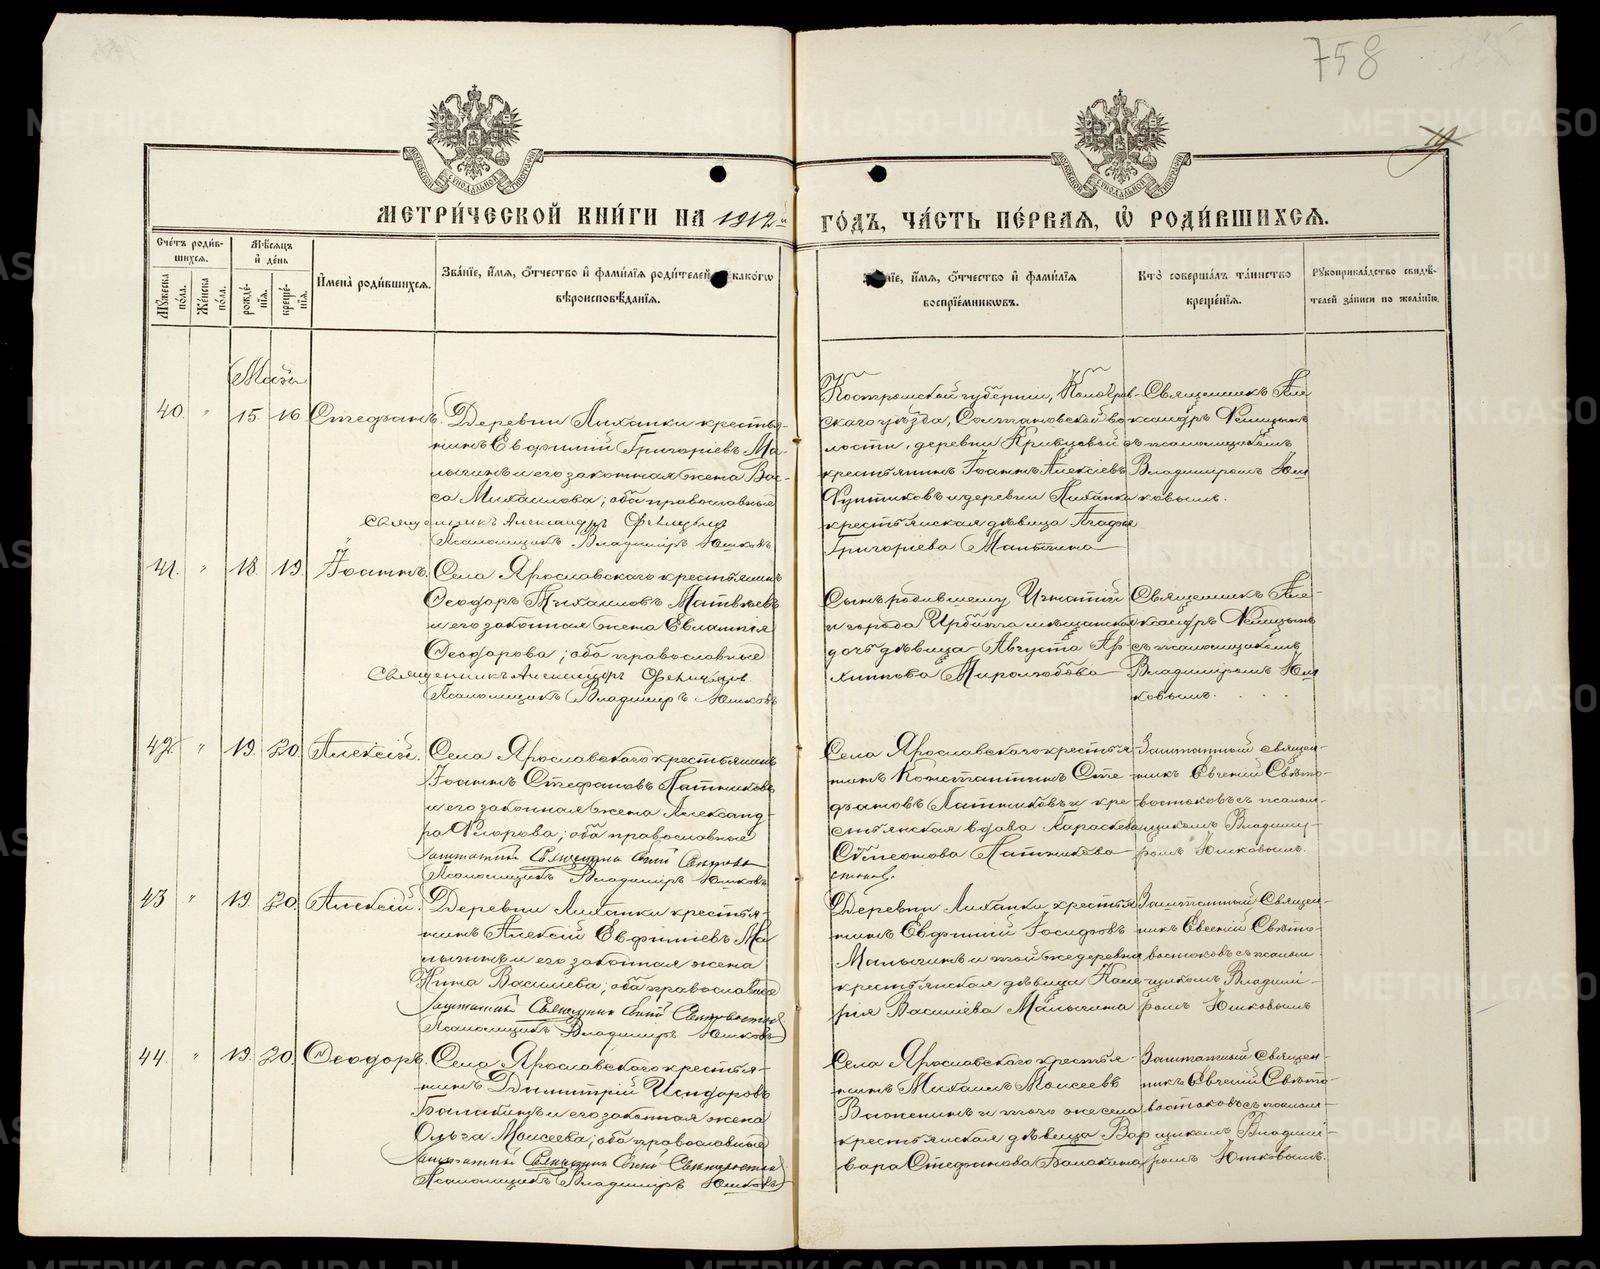 758
19
МЕТРИ́ЧЕСКОЙ КНИ́ГИ НА 1912й ГО́ДЪ, ЧА́СТЬ ПЕ́РВАЯ, Ѡ҆ РОДИ́ВШИХСЯ.
Сче́тъ роди́в-
шихся.
Мꙋ́жеска по́ла.
Же́нска по́ла.
Мѣ́сяцъ
и҆ де́нь
рожде́-
нїя.
креще́-
нїя.
И҆мена̀ роди́вшихся.
Зва́нїе, и҆́мя, ѻ҆́тчество и҆ фами́лїя роди́телей како́гѡ
вѣроисповѣ́данїя.
и҆́мя, ѻ҆́тчество и҆ фами́лїя
воспрїе́мникѡвъ.
Кто̀ соверша́лъ та́инство
креще́нїя.
Рꙋкоприкла́дство свидѣ́-
телей за́писи по жела́нїю.
Майя
40. " 15 16 Стефанъ.
Деревни Лиханки крестья-
нинъ Евфимій Григоріевъ Ма-
лыгинъ и его законная жена Вас-
са Михаилова; оба православные
Священникъ Александръ Фелицынъ
Псаломщикъ Владиміръ Юшковъ
Костромской губерніи, Кологрив-
скаго уѣзда, Солтановской во-
лости, деревни Кривцовой
крестьянинъ Іоаннъ Алексіевъ
и деревни Лиханки
крестьянская дѣвица Агафія
Григоріева Малыгина
Священникъ Але-
ксандръ Фелицынъ
съ псаломщикомъ
Владиміромъ Юш
ковымъ.
41. " 18 19 Іоаннъ.
Села Ярославскаго крестьянинъ
Ѳеодоръ Михаиловъ Матвѣевъ
и его законная жена Евлампія
Ѳеодорова; оба православные
Священникъ Александръ Фелицынъ
Псаломщикъ Владиміръ Юшковъ
Сынъ родившему Игнатій
и города Ирбита мѣщанская
дочь дѣвица Августа Ар-
хипова Миролюбова
Священникъ Але-
ксандръ Фелицынъ
съ псаломщикомъ
Владиміромъ Юш
ковымъ.
42. " 19. 20. Алексій.
Села Ярославскаго крестьянинъ
Іоаннъ Стефановъ Латниковъ
и его законная жена Александ-
ра Флорова; оба православные
Заштатный Священникъ Евгеній Свѣтово-
стоковъ.
Псаломщикъ Владиміръ Юшковъ
Села Ярославскаго крестья-
нинъ Константинъ Сте-
фановъ Латниковъ и кре-
стьянская вдова Параскева
Сѵмеонова Латникова
Заштатный священ-
никъ Евгеній Свѣто-
востоковъ съ псалом-
щикомъ Владимі-
ромъ Юшковымъ.
43 " 19. 20. Алексій.
Деревни Лиханки крестья-
нинъ Алексій Евфиміевъ Ма
лыгинъ и его законная жена
Нина Васильева; оба православные
Заштатный Священникъ Евгеній Свѣтовостоковъ
Псаломщикъ Владиміръ Юшковъ
Деревни Лиханки крестья
нинъ Евфимій Іосифовъ
Малыгинъ и той же деревни
крестьянская дѣвица Кале-
рія Васильева Малыгина
Заштатный Священ-
никъ Евгеній Свѣто-
востоковъ съ псалом-
щикомъ Владимі-
ромъ Юшковымъ
44. " 19. 20. Ѳеодоръ.
Села Ярославскаго крестья-
нинъ Димитрій Исидоровъ
Балакинъ и его законная жена
Ольга Моисеева; оба православные
Заштатный Священникъ Евгеній Свѣтовостоковъ
Псаломщикъ Владиміръ Юшковъ
Села Ярославскаго крестья-
нинъ Михаилъ Моисеевъ
Важенинъ и того же села
крестьянская дѣвица Вар
вара Стефанова Балакина
Заштатный Священ-
никъ Евгеній Свѣто-
востоковъ съ псалом-
щикомъ Владимі-
ромъ Юшковымъ.
METRIKI.GASO-URAL.RU